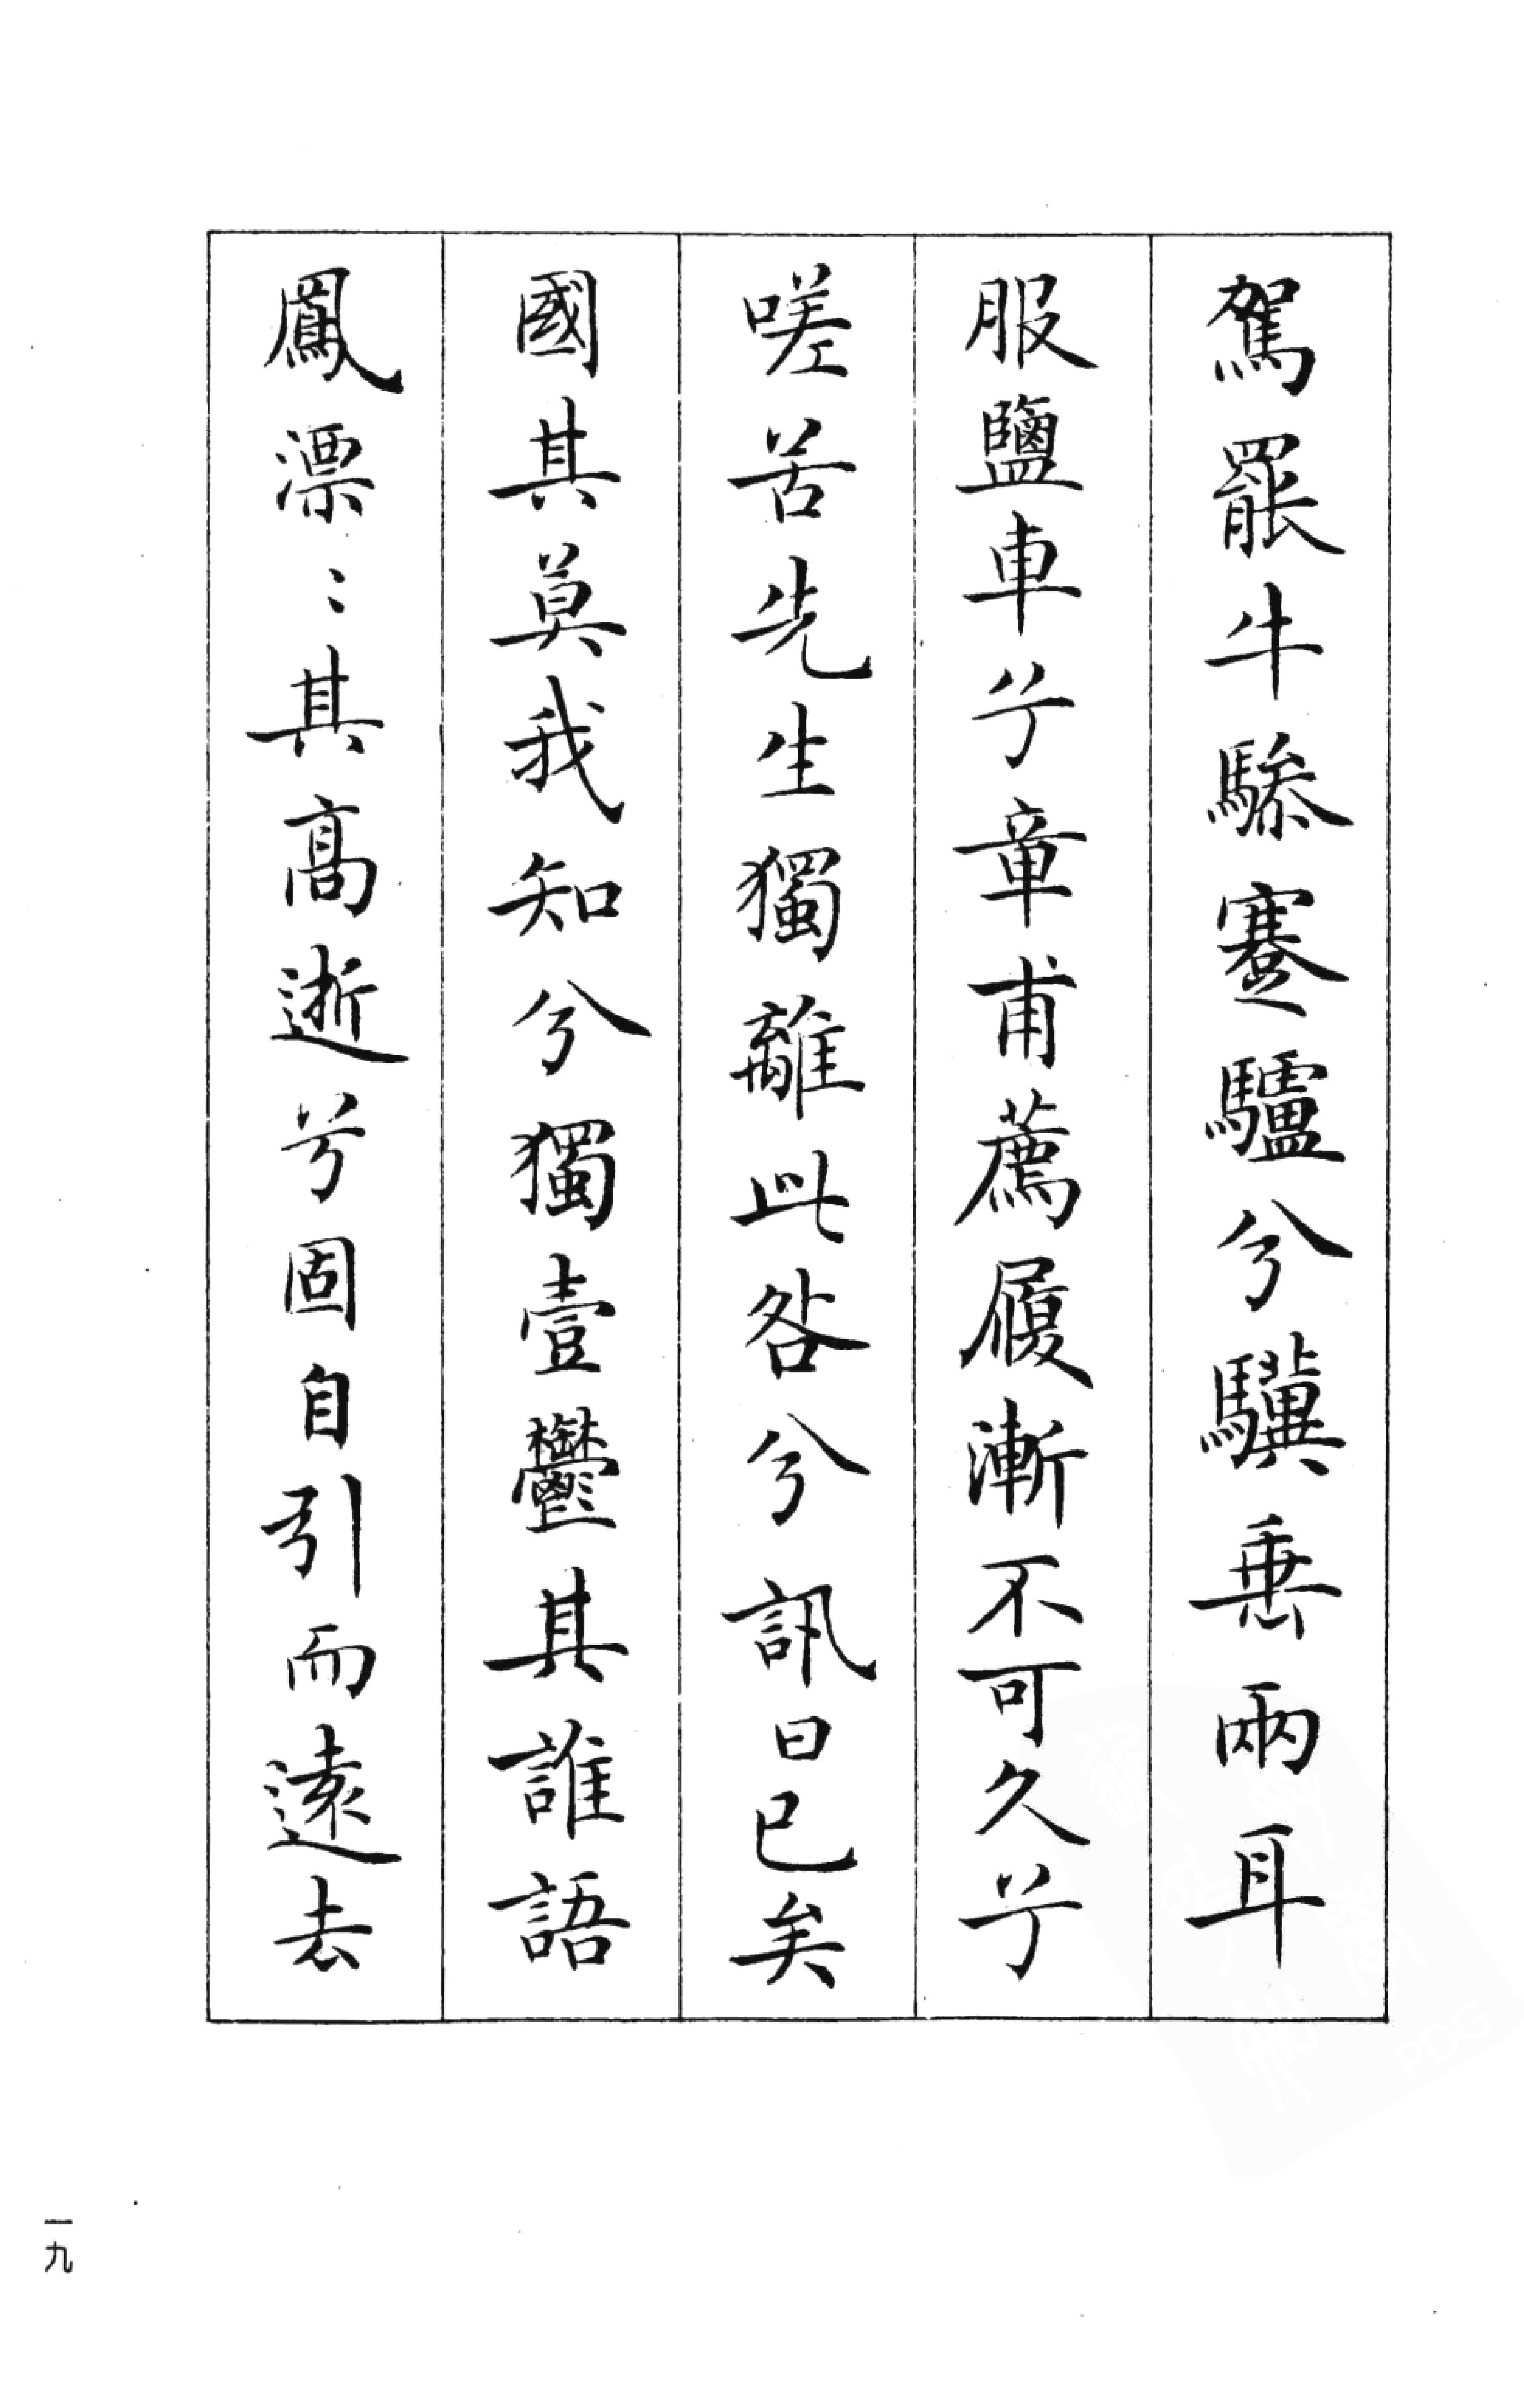 駕罷牛驂蹇驢兮驥垂兩耳
服鹽車兮章甫薦履漸不可久兮
嗟苦先生獨離此咎兮訊曰已矣
國其莫我知兮獨壹鬱其誰語
鳳漂〻其高逝兮固自引而遠去
一九
PDG